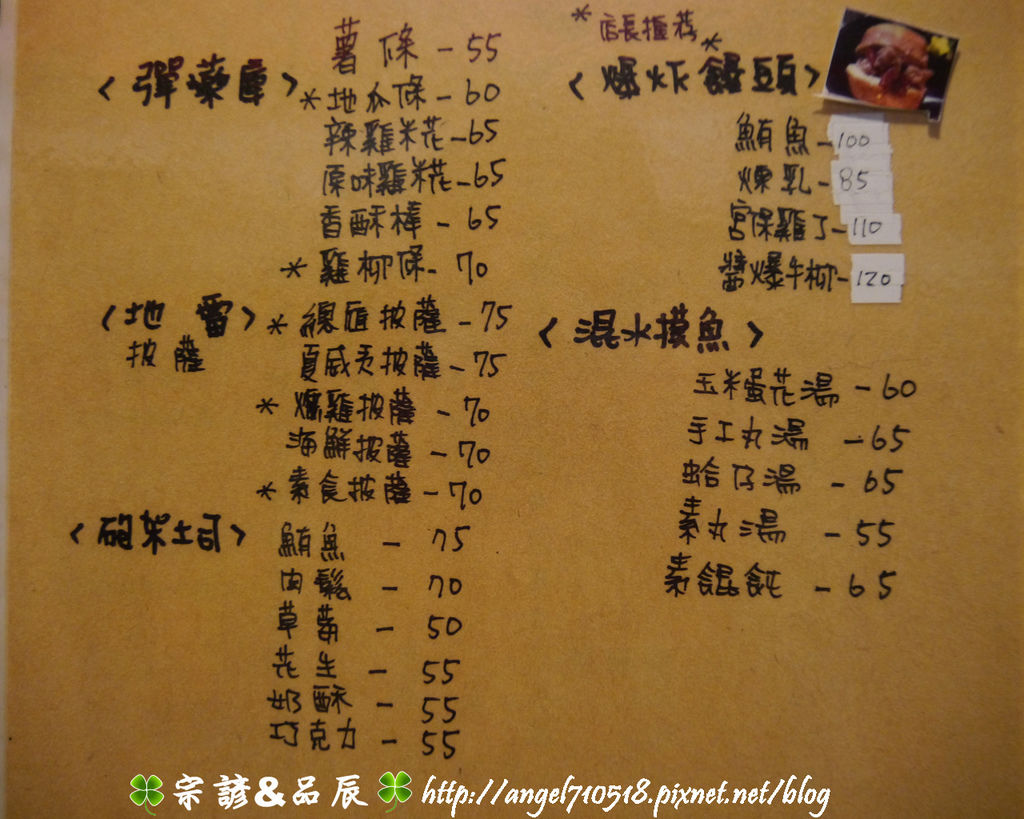 <彈藥庫>
薯條 - 55
*地瓜條 - 60
辣雞米花 - 65
原味雞米花 - 65
香酥棒 - 65
*雞柳條 - 70
<地雷>
披薩
*總匯披薩 - 75
夏威夷披薩 - 75
*燻雞披薩 - 70
海鮮披薩 - 70
*素食披薩 - 70
<砲架土司>
鮪魚 - 75
肉鬆 - 70
草莓 - 50
花生 - 55
奶酥 - 55
巧克力 - 55
*店長推荐*
<爆炸饅頭>
鮪魚 - 100
煉乳 - 85
宮保雞丁 - 110
醬爆牛柳 - 120
<混水摸魚>
玉米蛋花湯 - 60
手工丸湯 - 65
蛤仔湯 - 65
素丸湯 - 55
素餛飩 - 65
宗諺&品辰 http://angel710518.pixnet.net/blog